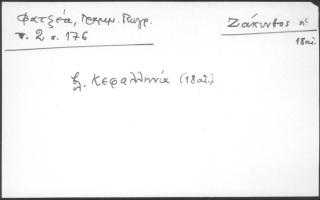 Φατζέα, Γραμμ. Γεωγρ.
τ. 2 σ. 176
Ζάκυνθος
18αι.
βλ. Κεφαλληνία (18αι.)